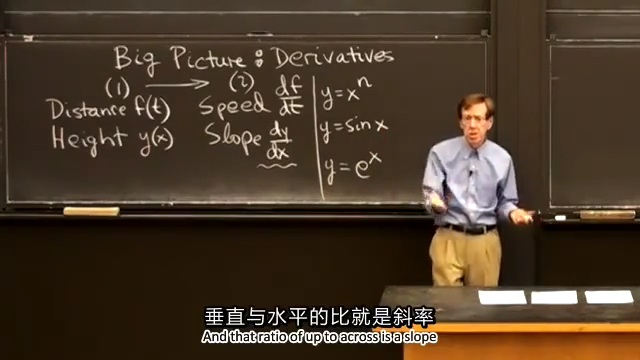 Big Picture: Derivatives
(1) → (2)
Distance f(t) Speed df/dt
Height y(x) Slope dy/dx
y=xⁿ
y=sin x
y=eˣ
垂直与水平的比就是斜率
And that ratio of up to across is a slope